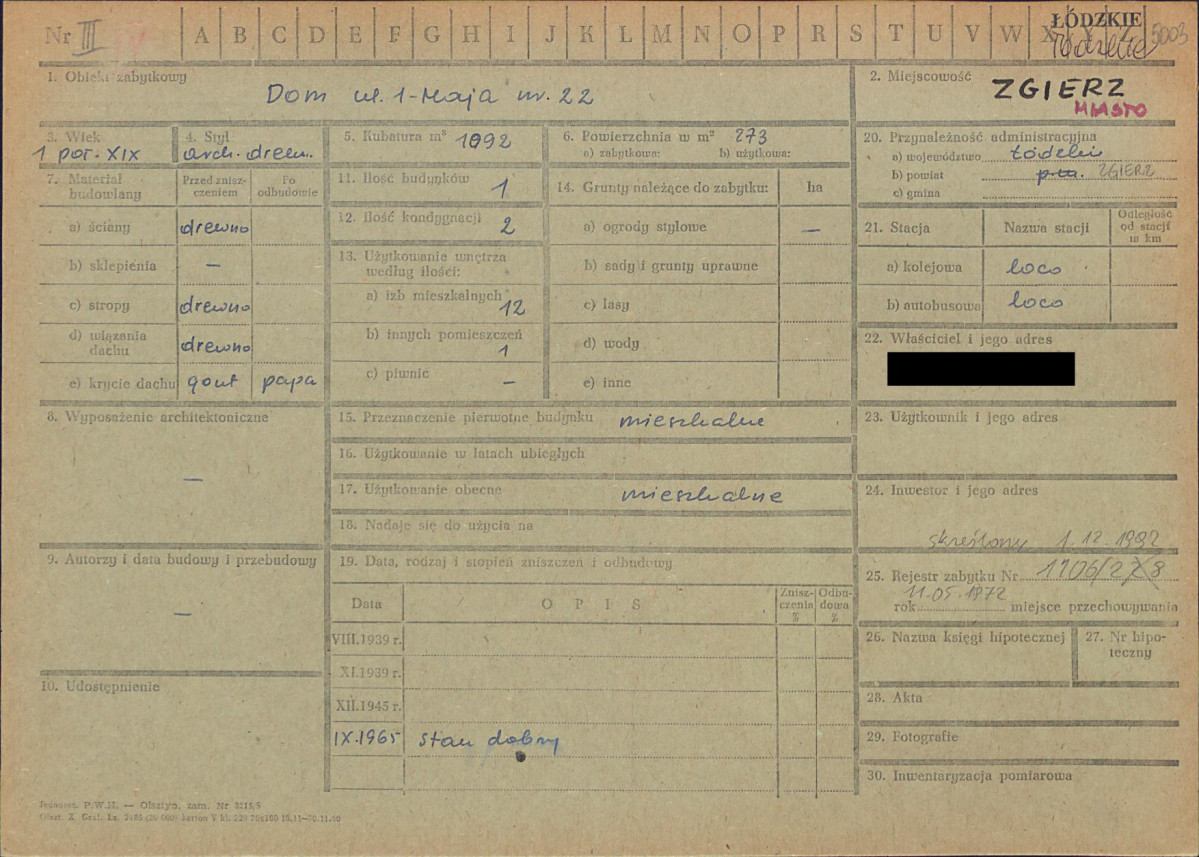 Nr III A B C D E F G H I J K L M N O P R S T U V W X Y Z 5003
ŁÓDZKIE
łódzkie
1. Obiekt zabytkowy
Dom ul. 1-Maja nr. 22
2. Miejscowość
ZGIERZ
MIASTO
3. Wiek
1 poł. XIX
4. Styl
arch. drewn.
5. Kubatura m³ 1992
6. Powierzchnia w m² 273
a) zabytkowa: b) użytkowa:
7. Materiał budowlany
Przed zniszczeniem
Po odbudowie
a) ściany drewno
b) sklepienia —
c) stropy drewno
d) wiązania dachu drewno
e) krycie dachu gont papa
8. Wyposażenie architektoniczne
—
9. Autorzy i data budowy i przebudowy
—
10. Udostępnienie
11. Ilość budynków 1
12. Ilość kondygnacji 2
13. Użytkowanie wnętrza
według ilości:
a) izb mieszkalnych 12
b) innych pomieszczeń 1
c) piwnic —
14. Grunty należące do zabytku: ha
a) ogrody stylowe —
b) sady i grunty uprawne
c) lasy
d) wody
e) inne
15. Przeznaczenie pierwotne budynku mieszkalne
16. Użytkowanie w latach ubiegłych
17. Użytkowanie obecne mieszkalne
18. Nadaje się do użycia na
19. Data, rodzaj i stopień zniszczeń i odbudowy
Data OPIS Zniszczenia % Odbudowa %
VIII.1939 r.
XI.1939 r.
XII.1945 r.
IX.1965 stan dobry
20. Przynależność administracyjna
a) województwo łódzkie
b) powiat ZGIERZ
c) gmina
21. Stacja Nazwa stacji Odległość od stacji w km
a) kolejowa loco
b) autobusowa loco
22. Właściciel i jego adres
23. Użytkownik i jego adres
24. Inwestor i jego adres
skreślony 1.12.1992
25. Rejestr zabytku Nr 1106/278
11.05.1972
rok miejsce przechowywania
26. Nazwa księgi hipotecznej
27. Nr hipoteczny
28. Akta
29. Fotografie
30. Inwentaryzacja pomiarowa